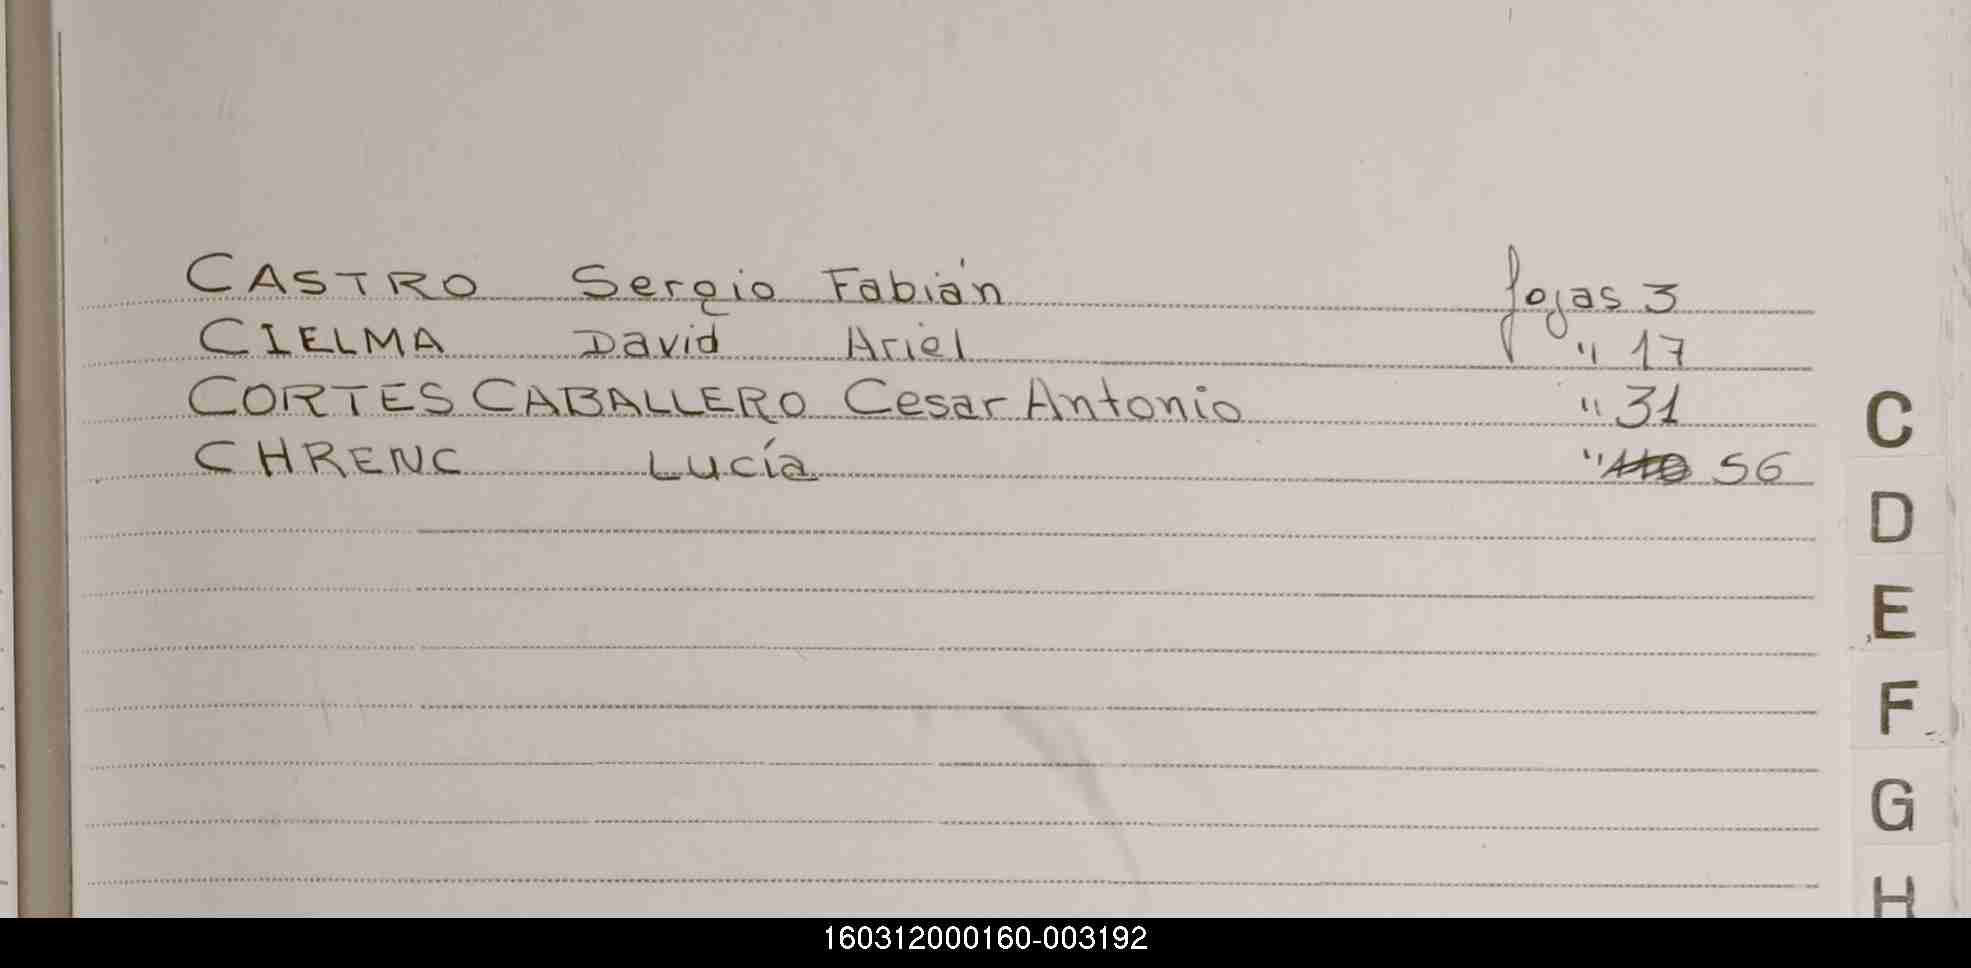 CASTRO Sergio Fabián fojas 3
CIELMA David Ariel " 17
CORTES CABALLERO Cesar Antonio " 31
CHRENC Lucía " 56
C
D
E
F
G
H
160312000160-003192